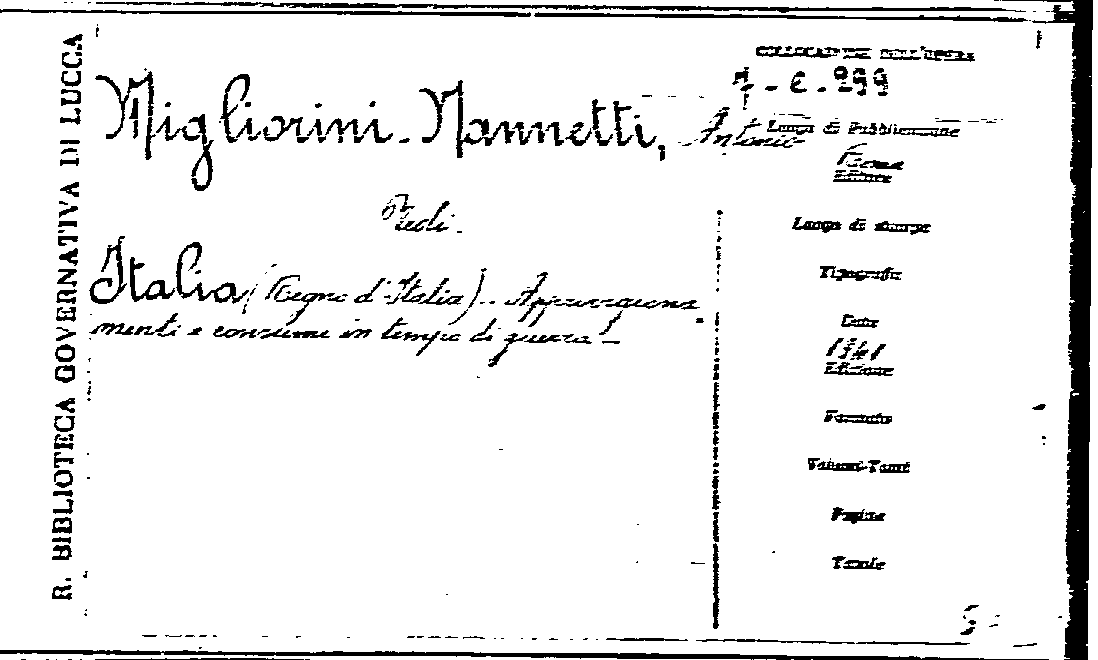 R. BIBLIOTECA GOVERNATIVA DI LUCCA
COLLOCAZIONE DELL'OPERA
7-E-299
Migliorini-Nannetti, Antonio
Luogo di Pubblicazione
Roma
Editore
Vedi.
Luogo di stampa
Italia (Regno d'Italia). Approvigiona
menti e consumi in tempo di guerra -
Tipografia
Data
1941
Edizione
Formato
Volumi-Tomi
Pagine
Tavole